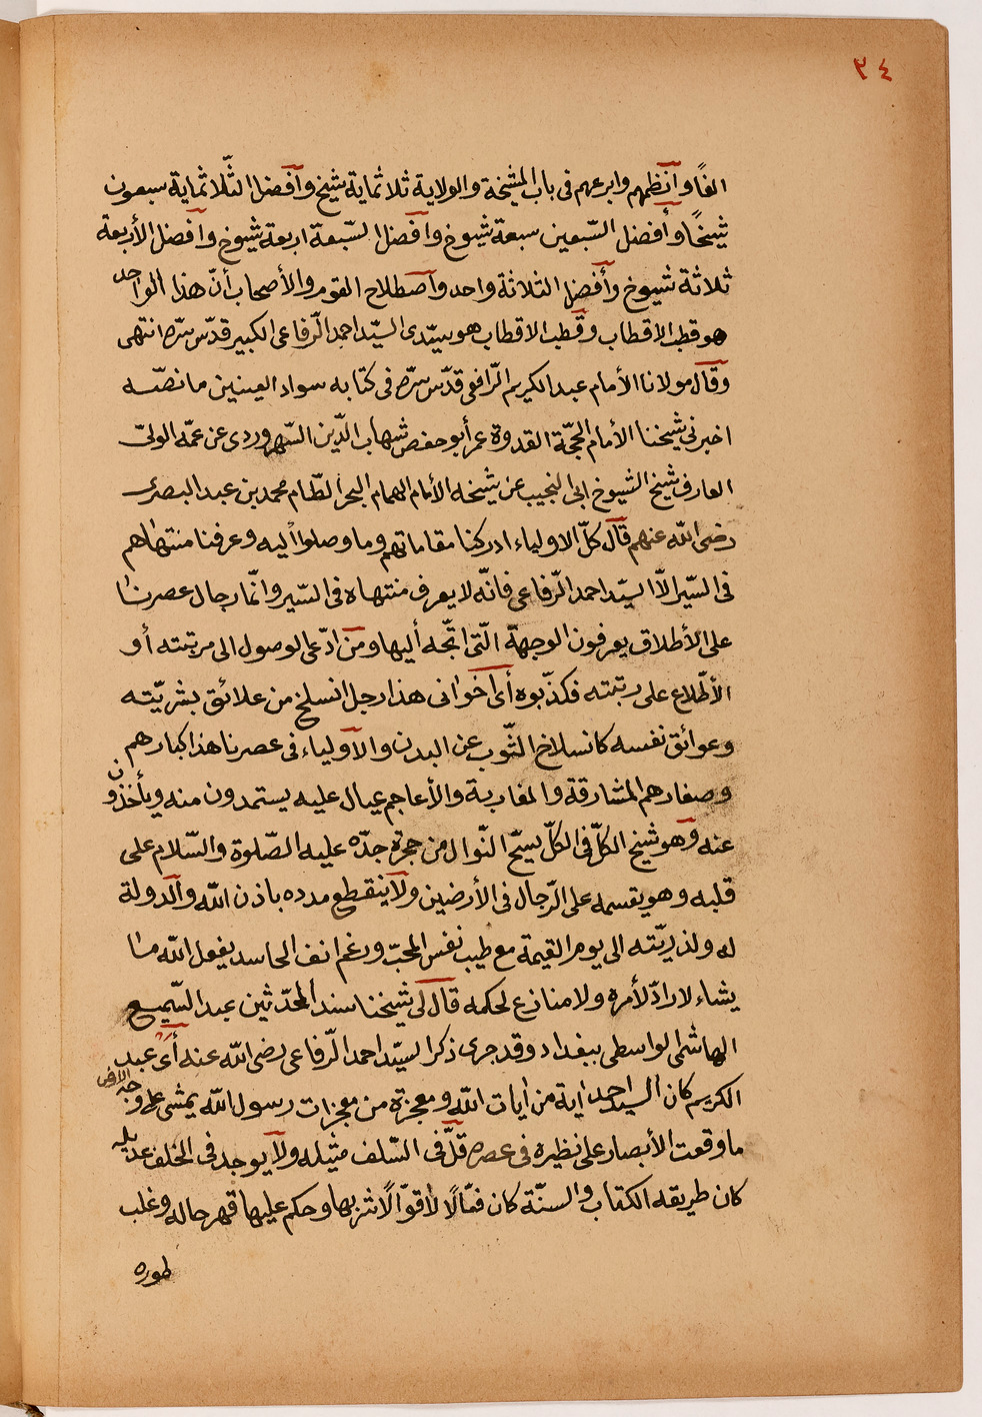 ٣٤
الفًا وأنظمهم وابرعهم فى باب المشيخة والولاية ثلاثماية شيخ وأفضل الثّلاثماية سبعون
شيخًا وأفضل السّبعين سبعة شيوخ وأفضل السّبعة اربعة شيوخ وأفضل الأربعة
ثلاثة شيوخ وأفضل الثلاثة واحد وآصطلاح القوم والأصحاب أنّ هذا الواحد
هو قطب الاقطاب وقطب الاقطاب هو سيّدى السيّد احمد الرّفاعى الكبير قدّس سرّه انتهى
وقال مولانا الأمام عبد الكريم الرّافعى قدّس سرّه فى كتابه سواد العينين ما نصّه
اخبرنى شيخنا الأمام الحجّة القدوة عمر أبو حفص شهاب الدّين السّهروردى عن عمّه الولىّ
العارف شيخ الشيوخ ابى النجيب عن شيخه الأمام الهمام البحر الطّام محمد بن عبد البصرى
رضى اللّه عنهم قال كلّ الاولياء ادركنا مقاماتهم وما وصلوا أليه وعرفنا منتهاهم
فى السّير الّا السيّد احمد الرّفاعى فانّه لا يعرف منتهاه فى السّير وانّما رجال عصرنا
على الأطلاق يعرفون الوجهة الّتى اتّجه أليها ومن ادّعى الوصول الى مرتبته أو
الأطّلاع على رتبته فكذّبوه أى اخوانى هذا رجل انسلخ من علائق بشريّته
وعوائق نفسه كانسلاخ الثّوب عن البدن والاولياء فى عصرنا هذا كبارهم
وصغارهم المشارقة والمغاربة والأعاجم عيال عليه يستمدون منه ويأخذون
عنه وهو شيخ الكلّ فى الكلّ يسحّ النّوال من حجرة جدّه عليه الصّلوة والسّلام على
قلبه وهو يقسمه على الرّجال فى الأرضين ولا ينقطع مدده باذن اللّه والدولة
له ولذريّته الى يوم القيمة مع طيب نفس المحبّ ورغم انف الحاسد يفعل اللّه ما
يشاء لا رادّ لأمره ولا منازع لحكمه قال لى شيخنا سند المحدّثين عبد السّميع
الهاشمى الواسطى ببغداد وقد جرى ذكر السيّد احمد الرّفاعى رضى اللّه عنه أى عبد
الكريم كان السيد احمد اية من ايات اللّه ومعجزة من معجزات رسول اللّه يمشى على وجه الارض
ما وقعت الأبصار على نظيره فى عصره قلّ فى السّلف مثيله ولا يوجد فى الخلف عديله
كان طريقه الكتاب والسنّة كان فعّالًا لا قوّالًا نثر بها وحكم عليها قهر حاله وغلب
طوره